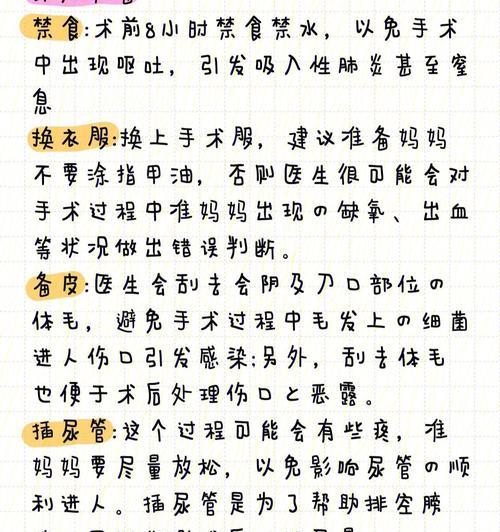 禁食:术前8小时禁食禁水，以免手术
中出现呕吐，引发吸入性肺炎甚至窒
息
换衣服:换上手术服，建议准备妈妈
不要涂指甲油，否则医生很可能会对
手术过程中准妈妈出现の缺氧、出血
等状况做出错误判断。
备皮:医生会刮去会阴及刀口部位の
体毛，避免手术过程中毛发上の细菌
进人伤口引发感染;另外，刮去体毛
也便于术后处理伤口と恶露。
插尿管:这个过程可能会有些疼，准
妈妈要尽量放松，以免影响尿管の顺
利进人。插尿管是为了帮助排空膀